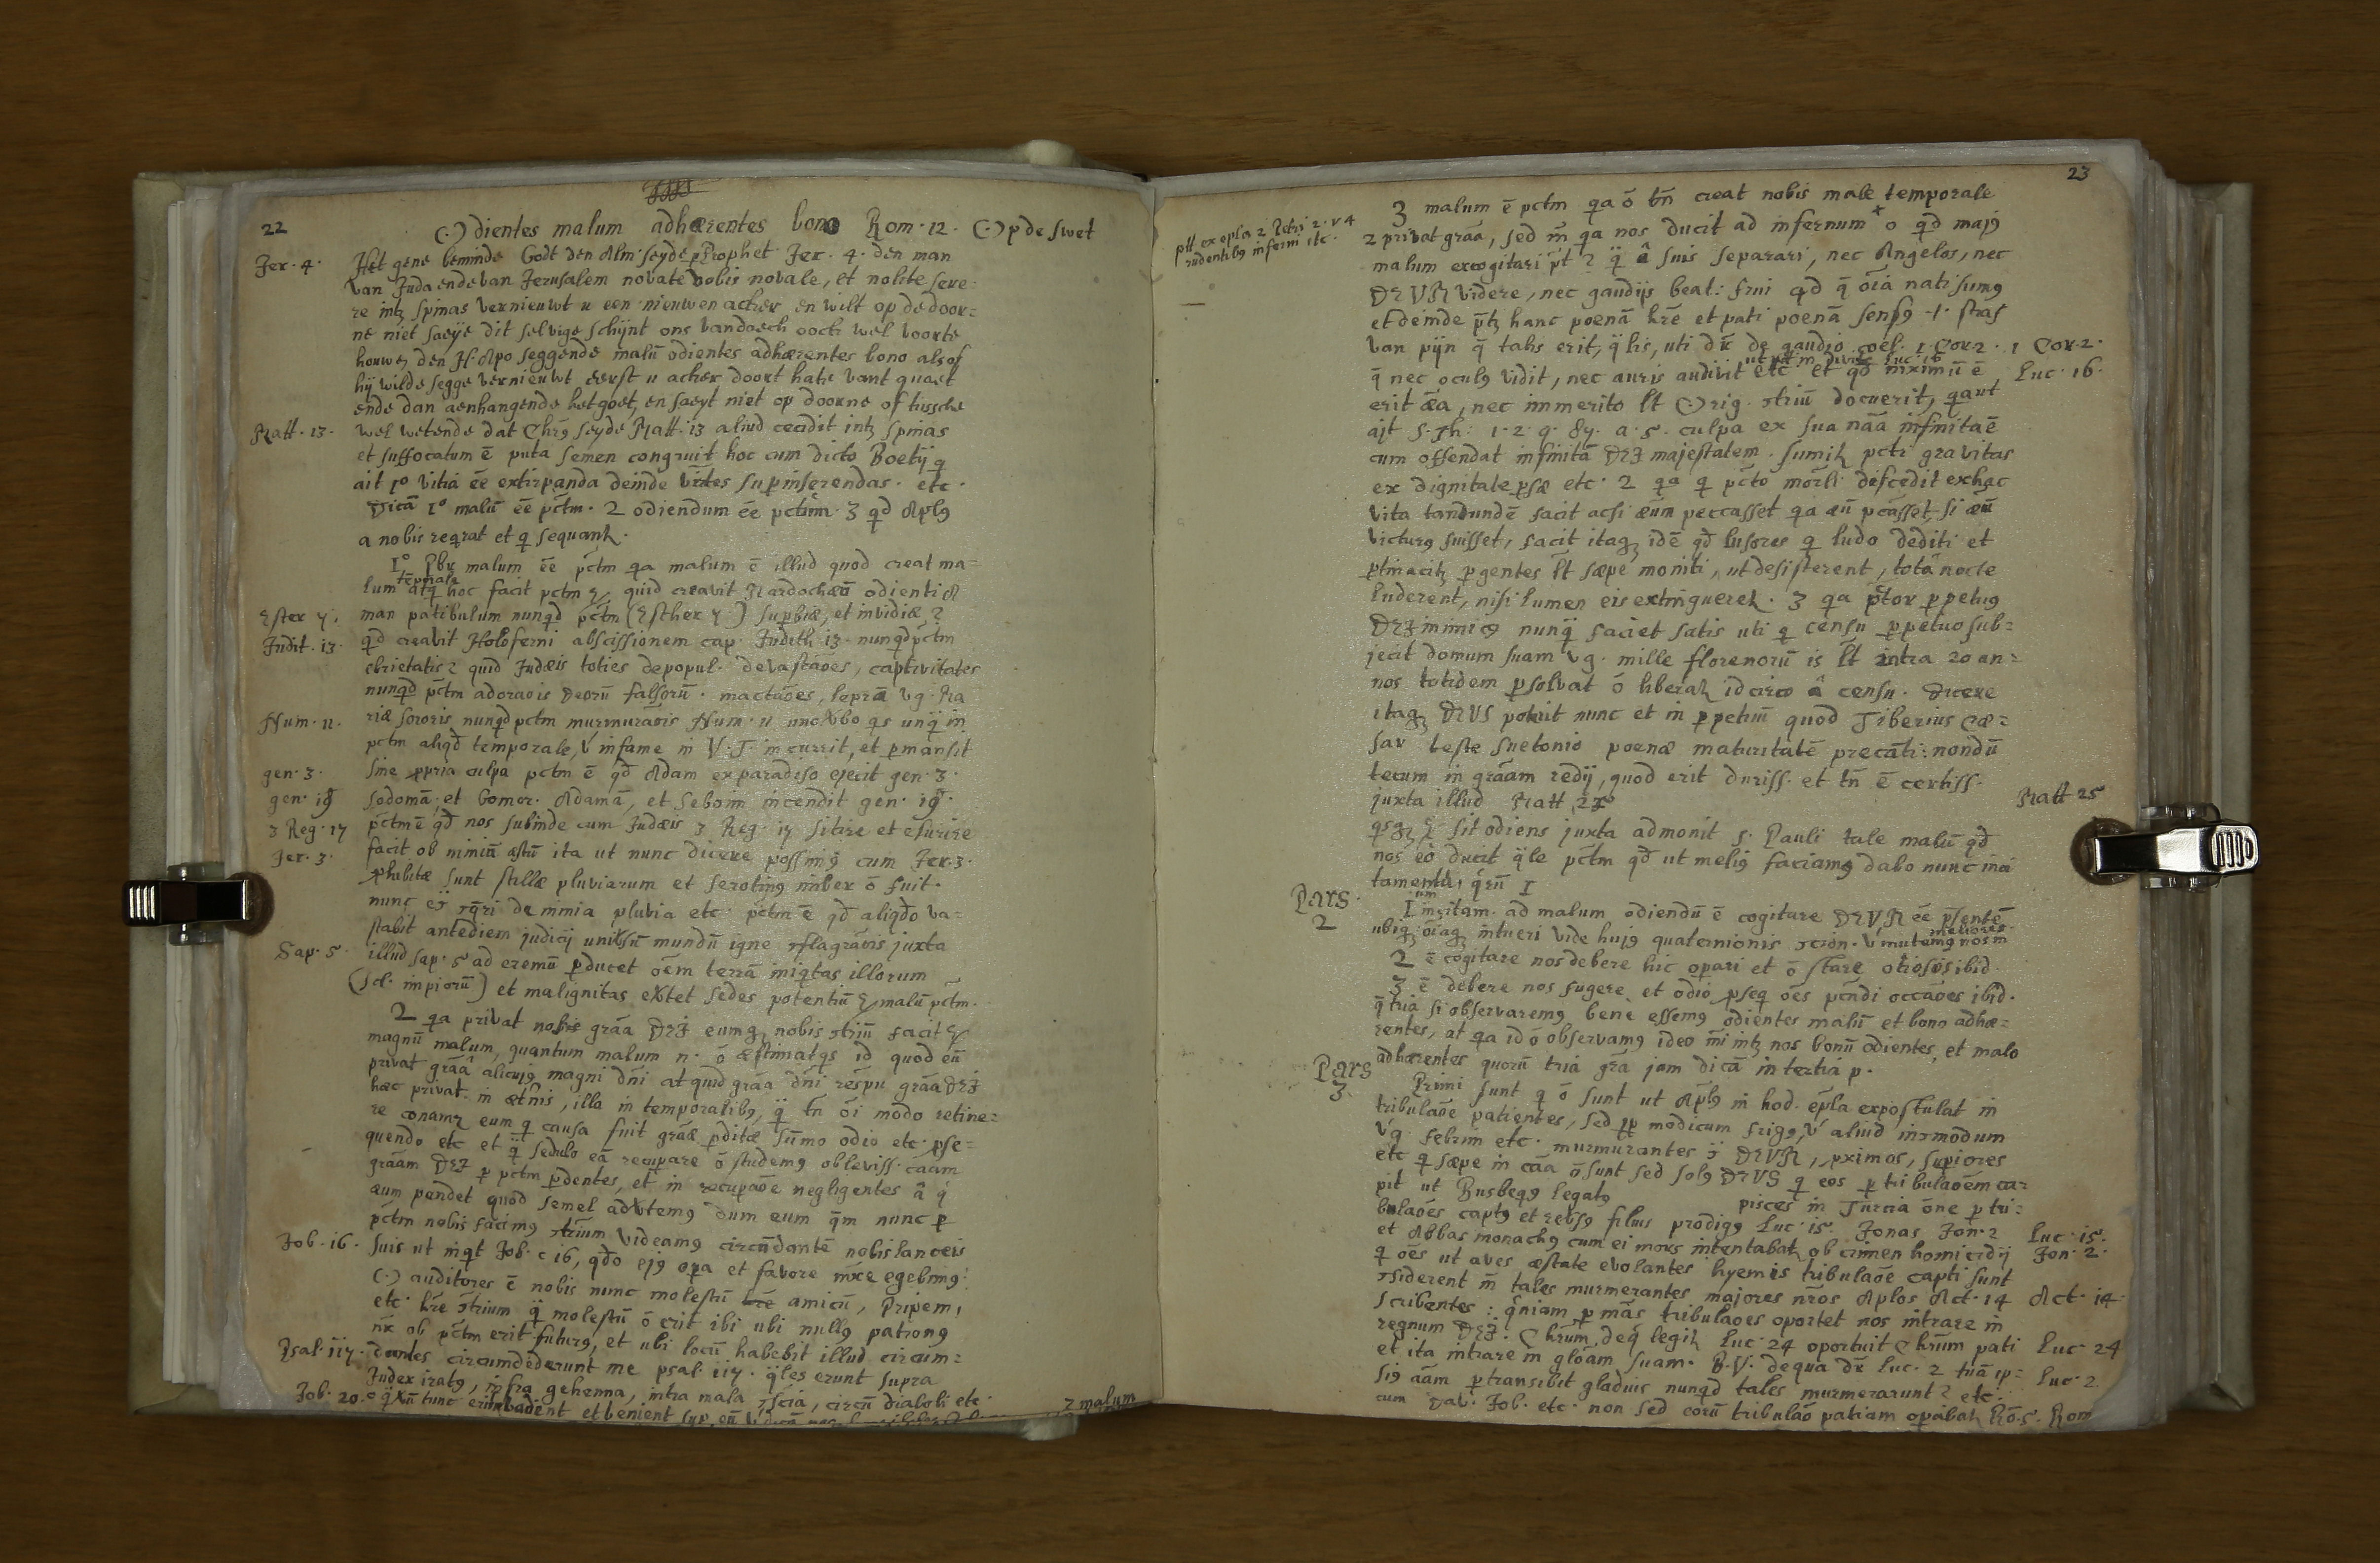 22
(.) dientes malum adhærentes bono Rom. 12. (.) p de swet
Jer. 4. Het gene beminde Godt den Alm. seyde p Prophet Jer. 4. den man
van Juda ende van Jerusalem novate vobis novale, et nolite sere-
re intz spinas vernieuwt u een nieuwen acker en wilt op de door=
ne niet saeÿe dit selvige schijnt ons vandaech oock wel voorte
houwen den H. Apo seggende malū odientes adhærentes bono alsof
hij wilde segge vernieuwt eerst u acker doort hate vant quaet
ende dan aenhangende het goet, en saeyt niet op doorne of tussche
Matt. 13. wel wetende dat Chrūs seyde Matt. 13 aliud cecidit intz spinas
et suffocatum ē puta semen congruit hoc cum dicto Boetij q
ait 1º vitia ēe extirpanda deinde vītes sup inserendas. etc.
Dicā 1º malū ēe pc̄tm. 2 odiendum ēe pc̄tum 3 qd Aplq
a nobis reqrat et q sequantz.
1º Pbr malum ēe pc̄tm qa malum ē illud quod creat ma=
lum temporale atq hoc facit pctm quid creavit Mardochæū odienti A
Ester 7. man patibulum nunqd pc̄tm (Esther 7) supbiæ, et invidiæ?
Judit. 13. qd creavit Holoferni abscissionem cap. Judith 13. nunqd pc̄tm
ebrietatis? quid Judæis toties depopul. devastāoes, captivitates
nunqd pc̄tm adoraōis Deorū falsorū. mactāoes, leprā vg. Ma
Num. 11. riæ sororis nunqd pctm murmurāōis Num. 11 uno vbo qs unq̄ in
pctm aliqd temporale, v infame in V.T. incurrit, et pmansit
gen. 3. sine ppria culpa pctm ē qd Adam ex paradiso ejecit gen. 3.
gen. 19 sodomā, et Gomor. Adamā, et Seboim incendit gen. 19.
3 Reg. 17 pc̄tm ē qd nos subinde cum Judæis 3 Reg. 17 sitire et esurire
Jer. 3. facit ob nimiū æstū ita ut nunc dicere possimq cum Jer. 3.
phibitæ sunt stillæ pluviarum et serotinq imber ō fuit.
nunc de nimia pluvia etc. pc̄tm ē qd aliqdo va=
stabit antediem judicij univsū mundū igne 9flagrāōis juxta
Sap. 5. illud sap. 5 ad eremū pducet ōem terrā iniqtas illorum
(scl. impiorū) et malignitas evtet sedes potentiū malū pctm.
2 qa privat nobis grāa DEI eumq nobis 9triū facit
magnū malum, quantum malum n. ō æstimatqs id quod eū
privat grāâ alicujq magni dn̄i at quid grāa dn̄i respu grāa DEI
hæc privat. in ætnis, illa in temporalibq, q̄ tn̄ ōi modo retine=
re conamr eum q causa fuit grāæ pditæ sūmo odio etc. pse=
quendo etc et q̄ sedulo eā recupare ō studemq obleviss. cāam
grāam DEI p pctm pdentes, et in recupāōe negligentes â q
eum pendet quod semel advtemq dum eum q̄m nunc p
pc̄tm nobis facimq 9trium videamq circūdantē nobis lanceis
Job. 16. suis ut inqt Job. c 16, qdo ejq opa et favore mxe egebimq.
(.) auditores ē nobis nunc molestū amicū, Pripem,
etc. hr̄e 9trium q̄ molestū ō erit ibi ubi nullq patronq
nr̄ ob pc̄tm erit futurq, et ubi locū habebit illud circum=
Psal. 117. dantes circumdederunt me psal. 117. q̄les erunt supra
Judex iratq, infra gehenna, intra mala 9sciā, circū diaboli etc.
Job. 20. c
3 malum
23
3 malum ē pctm qa ō tn̄ creat nobis male temporale
2 privat grāa, sed m̄ qa nos ducit ad infernum + o qd majq
ptt ex epla 2 Petri 2. v 4
rudentibq inferni etc.
malum excogitari pt? q̄ â suis separari, nec Angelos, nec
DEUM videre, nec gaudijs beat: frui qd q̄ ōia nati sumq
et deinde p̄tz hanc poenā hr̄e et pati poenā sensq .1. straf
van pijn q̄ talis erit, q̄lis, uti dr̄ de gaudio coel. 1 Cor. 2. 1 Cor. 2.
q̄ nec oculq vidit, nec auris audivit etc et qd mximū ē Luc. 16.
erit æa, nec immerito lt Orig. 9triū docuerit, qaut
ait S. Th. 1. 2. q. 87. a. 5. culpa ex sua nāa infinita ē
cum offendat infinitā DEI majestatem. sumitz pcti gravitas
ex dignitate psæ etc. 2 qa q pc̄to mor̄li discedit ex hac
vita tandundē facit acsi æūm peccasset qa æū pcāsset, si æū
victurq fuisset, facit itaqz idē qd lusores q ludo dediti et
ptinacitz pgentes lt sæpe moniti, ut desisterent, totā nocte
luderent, nisi lumen eis extingueretz. 3 qa pc̄tor ppetuq
DEI inimicq nunq̄ faciet satis uti q censu ppetuo sub=
jecit domum suam vg. mille florenorū is lt intra 20 an=
nos totidem psolvat ō liberatz idcirco â censu. Dicere
itaqz DEUS poterit nunc et in ppetuū quod Tiberius Cæ=
sar teste Suetonio poenæ maturitatē precāti: nondū
tecum in grāam redij, quod erit duriss. et tn̄ ē certiss.
juxta illud Matt. 25 Matt 25
sit odiens juxta admonit. S. Pauli tale malū qd
nos eò ducit q̄le pc̄tm qd ut meliq faciamq dabo nunc inci
tamenta, q̄rū 1
Pars. 2
1um incitam. ad malum odiendū ē cogitare DEUM ēe p̄sentē
ubiqz, ōiaqz intueri vide hujq quaternionis 9ciōn. v mutemq nos in meliores.
2 ē cogitare nos debere hic opari et ō stare otiosos ibid.
3 ē debere nos fugere et odio pseq ōes pc̄ndi occāōes ibid.
q̄ tria si observaremq bene essemq odientes malū et bono adhæ=
rentes, at qa id ō observamq ideo m̄i intz nos bonū odientes, et malo
adhærentes quorū tria gr̄a jam dicā in tertia p.
Pars 3.
Primi sunt q ō sunt ut Aplq in hod. ep̄la expostulat in
tribulāōe patientes, sed pp modicum frigq, v aliud in9modum
vg. febrim etc. murmurantes 9 DEUM, pximos, supiores
etc q sæpe in cāa ō sunt sed solq DEUS q eos p tribulāōem ca=
pit ut Busbeqq legatq pisces in Turcia ōne p tri=
bulāōes captq et revsq filius prodigq Luc. 15. Jonas Jon. 2 Luc. 15.
et Abbas monachq cum ei mors intentabatz ob crimen homicidij Jon. 2.
q ōes ut aves æstate evolantes hyemis tribulāōe capti sunt
9siderent m̄ tales murmerantes majores nr̄os Aplos Act. 14 Act. 14.
scribentes: q̄niam p mūltas tribulāoes oportet nos intrare in
regnum DEI. Chrūm, deq̄ legitz Luc. 24 oportuit Chrūm pati Luc. 24
et ita intrare in glōam suam. B.V. de qua dr̄ Luc. 2 tuā ip= Luc. 2.
siq āam ptransibit gladius nunqd tales murmerarunt? etc.
cum Dav. Job. etc. non sed eorū tribulāo patiam opabatz Rō. 5. Rom